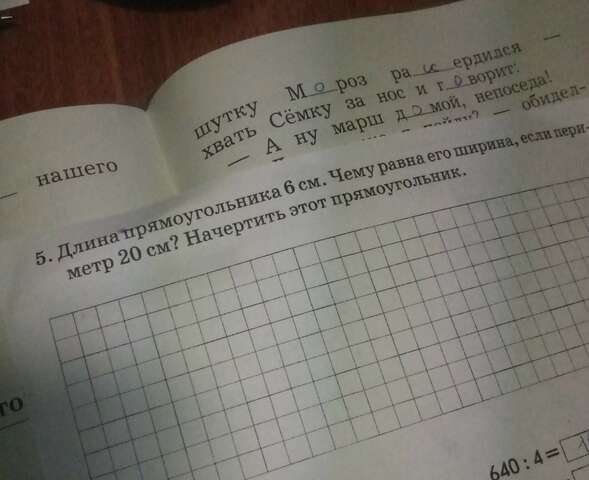 шутку М о роз ра и ердился —
хвать Сёмку за нос и г о ворит:
— А ну марш д о мой, непоседа!
— обидел-
нашего
5. Длина прямоугольника 6 см. Чему равна его ширина, если пери-
метр 20 см? Начертить этот прямоугольник.
то
640 : 4 =